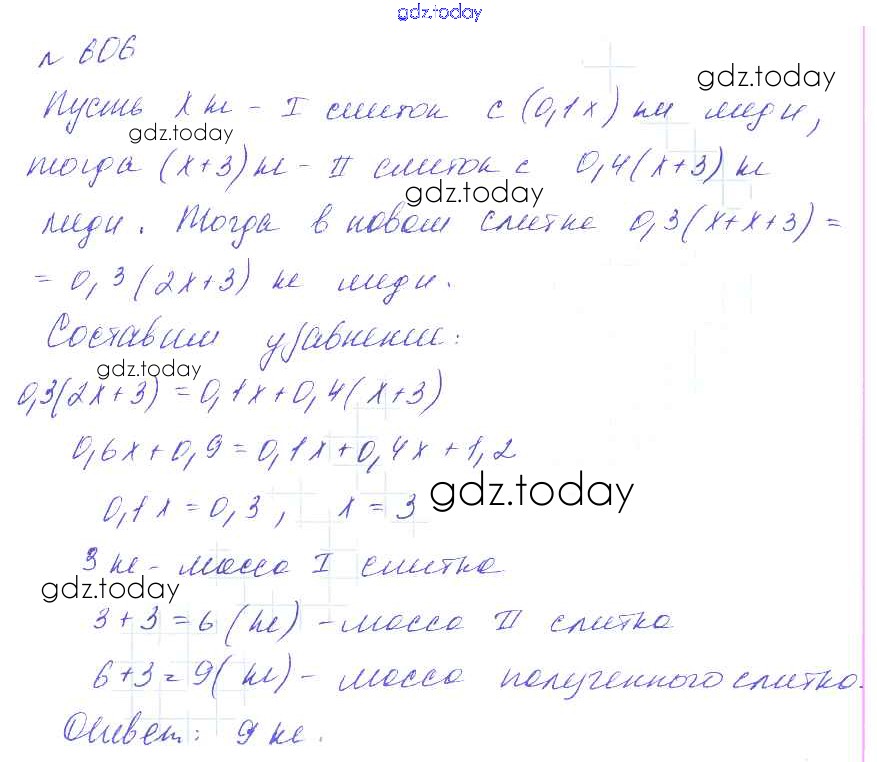 gdz.today
№ 606
gdz.today
Пусть x кг - I слиток с (0,1x) кг меди,
gdz.today
тогда (x+3) кг - II слиток с 0,4(x+3) кг
gdz.today
меди. Тогда в новом слитке 0,3(x+x+3) =
= 0,3(2x+3) кг меди.
Составим уравнение:
gdz.today
0,3(2x+3) = 0,1x+0,4(x+3)
0,6x+0,9=0,1x+0,4x+1,2
0,1x = 0,3, x = 3
gdz.today
3 кг - масса I слитка
gdz.today
3+3=6 (кг) - масса II слитка
6+3=9(кг) - масса полученного слитка.
Ответ: 9 кг.